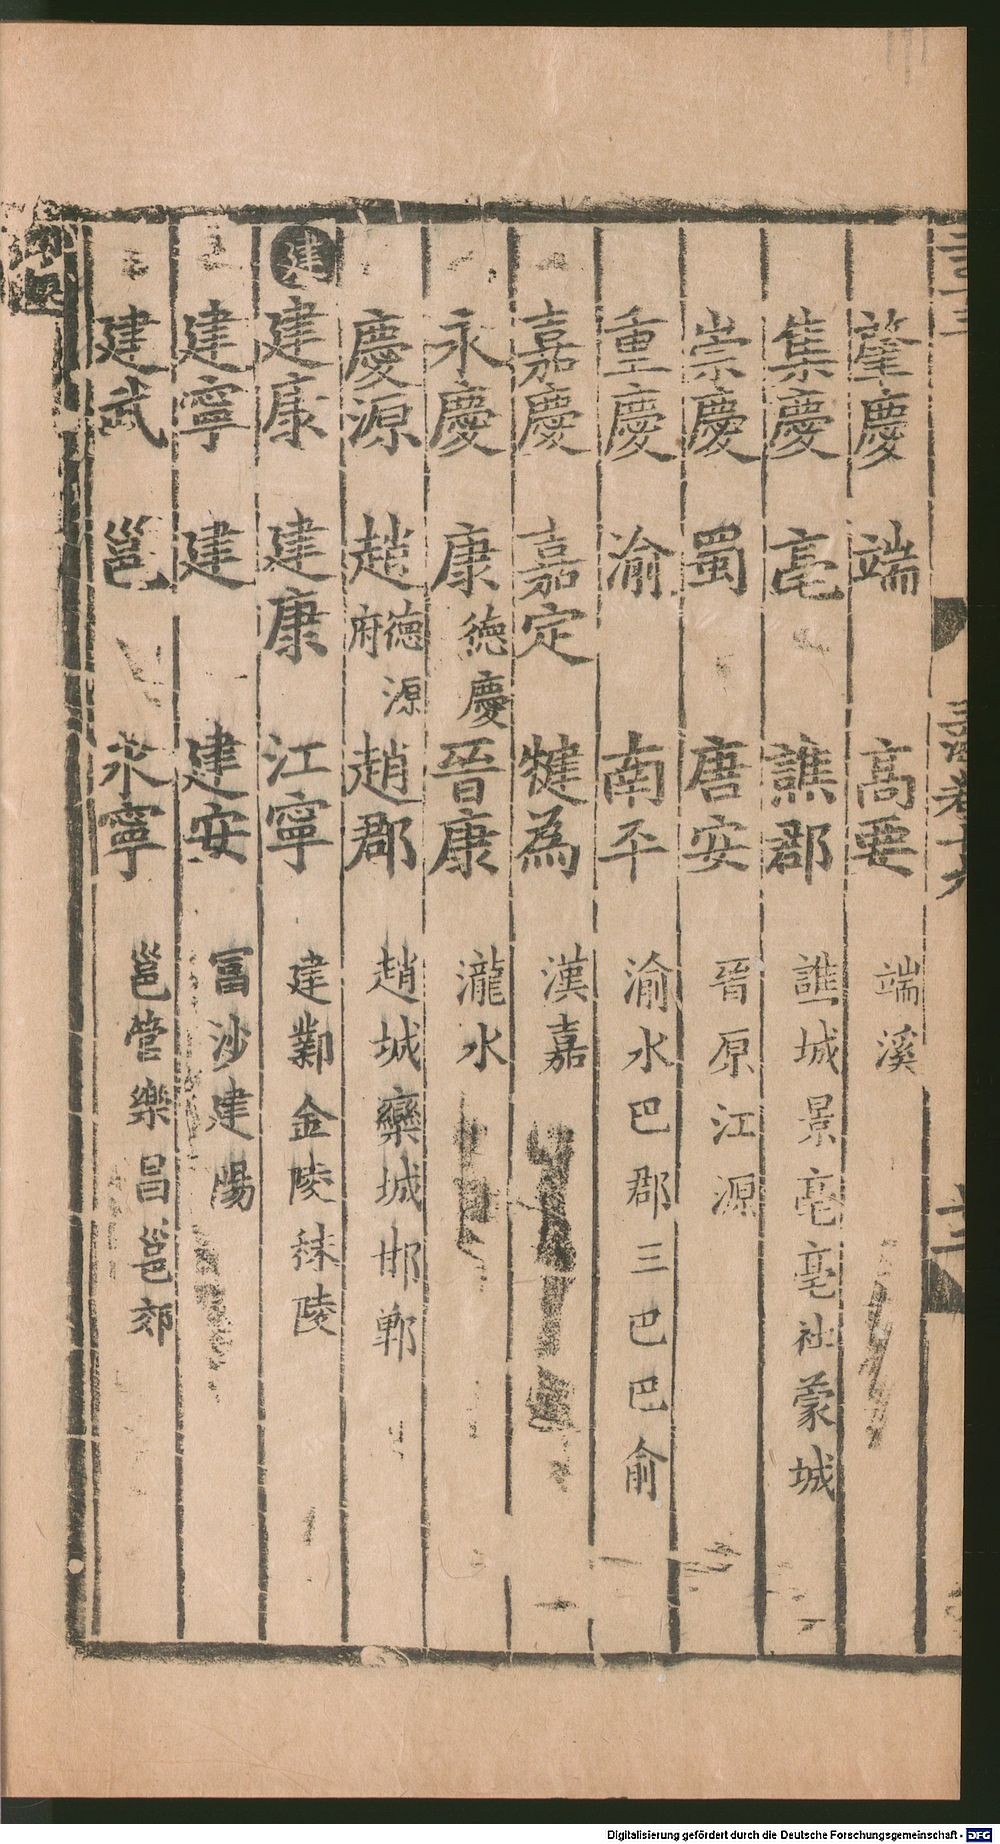 肇慶 端 高要 端溪
集慶 亳 譙郡 譙城景亳亳社蒙城
崇慶 蜀 唐安 晉原江源
重慶 渝 南平 渝水巴郡三巴巴俞
嘉慶 嘉定 犍為 漢嘉
永慶 康德慶 晉康 瀧水
慶源 趙德源府 趙郡 趙城欒城邯鄲
建 建康 建康 江寧 建鄴金陵秣陵
建寧 建 建安 富沙建陽
建武 邕 永寧 邕管樂昌邕郊
Digitalisierung gefördert durch die Deutsche Forschungsgemeinschaft - DFG